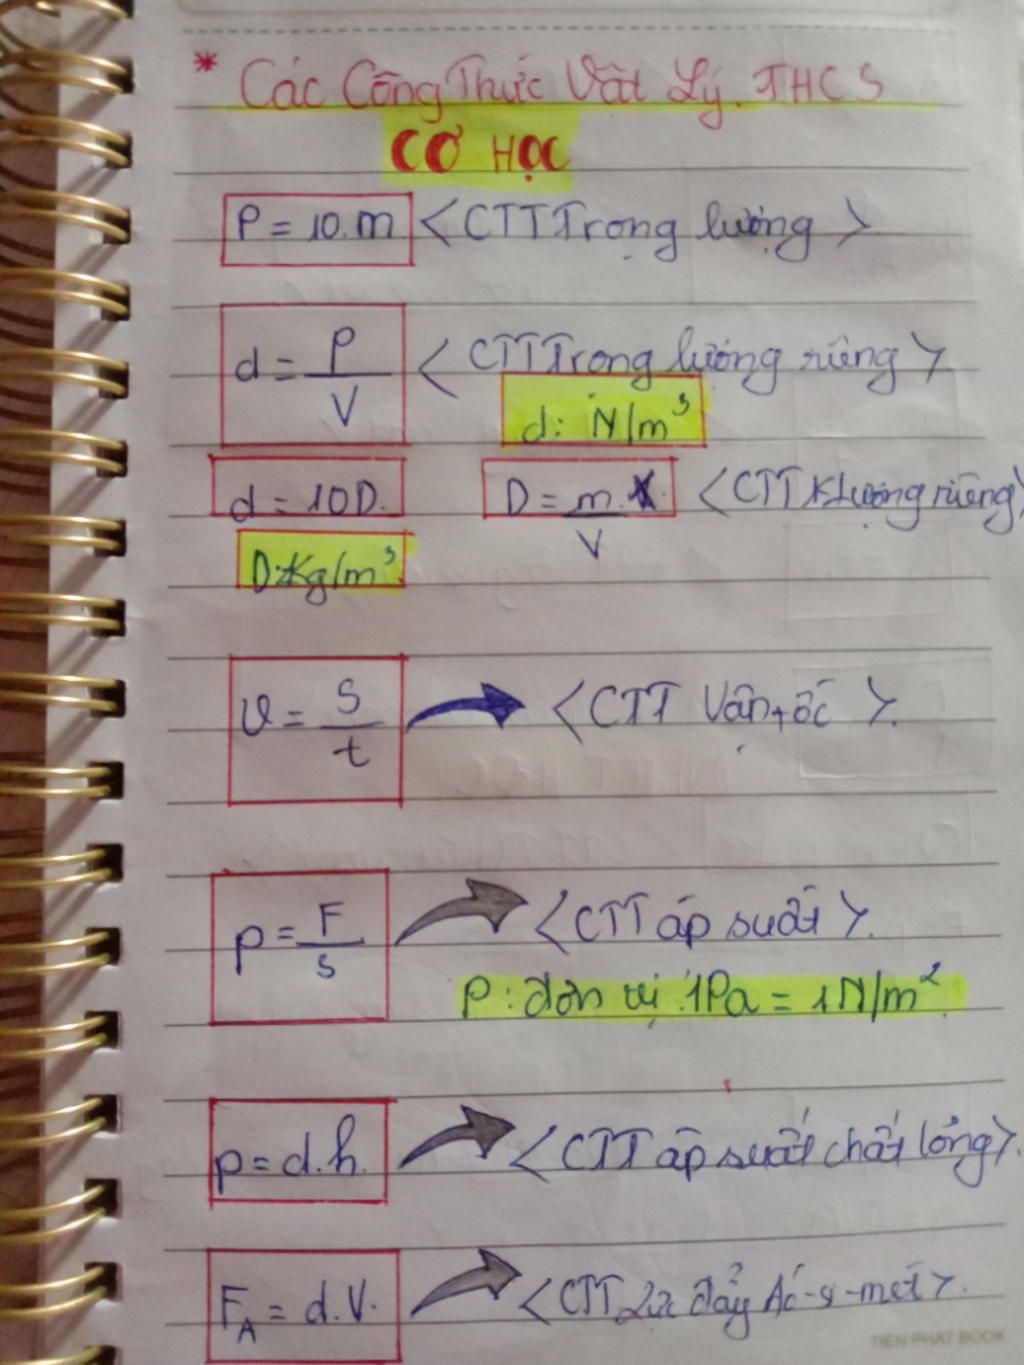 * Các Công Thức Vật Lý. THCS
CƠ HỌC
P = 10.m <CTT Trọng lượng>
d = P/V <CTT Trọng lượng riêng>
d: N/m³
d = 10D. D = m/V <CTT KLượng riêng>
D: Kg/m³
v = S/t <CTT Vận tốc>.
p = F/s <CTT áp suất>.
P: đơn vị 1Pa = 1N/m².
p = d.h. <CTT áp suất chất lỏng>.
F_A = d.V. <CTT Lực đẩy Ác-si-mét>.
TIEN PHAT BOOK